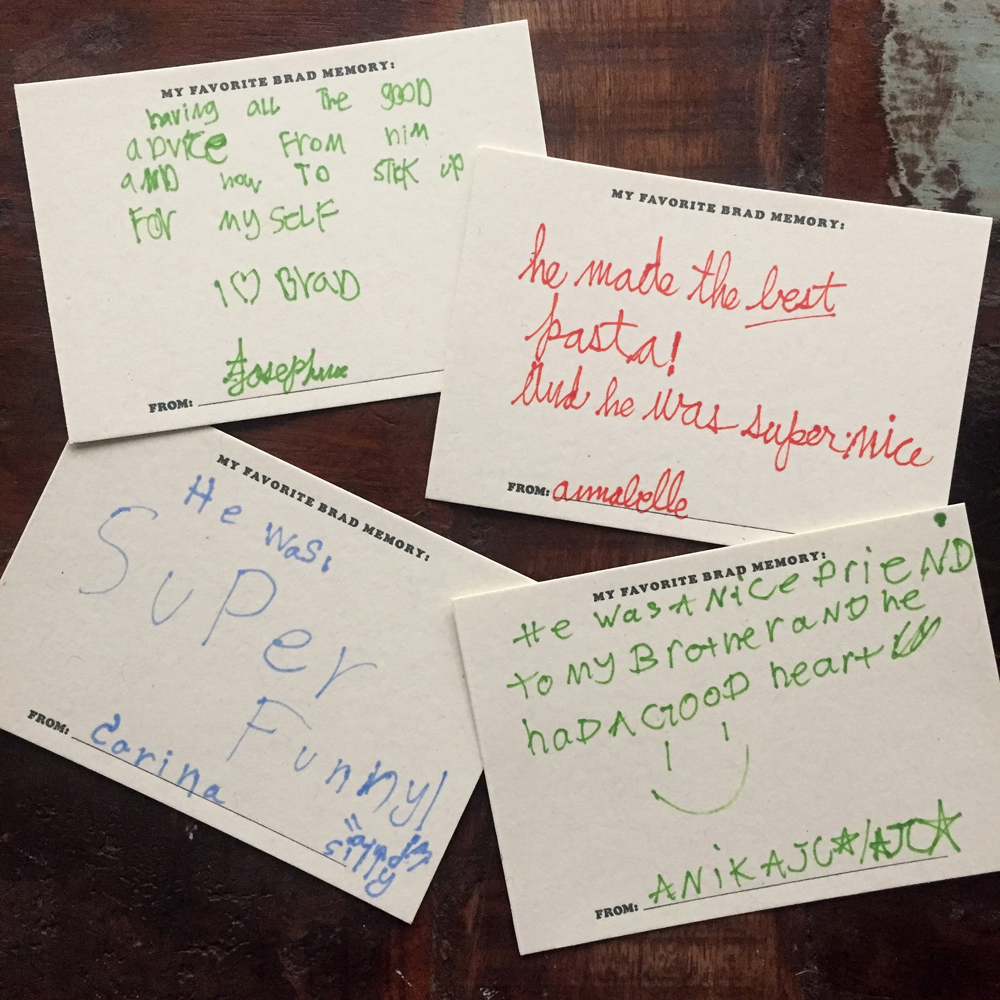 MY FAVORITE BRAD MEMORY:
having all the good
advice from him
and how to stick up
for my self
I ♡ Brad
FROM: Josephine
MY FAVORITE BRAD MEMORY:
he made the best
pasta!
And he was super nice
FROM: annabelle
MY FAVORITE BRAD MEMORY:
He was
Super
Funny!
silly
FROM: Carina
MY FAVORITE BRAD MEMORY:
He was A Nice frieND
to my BrotheraND he
haD A GOOD heart
FROM: ANiKAJC☆/AJC☆